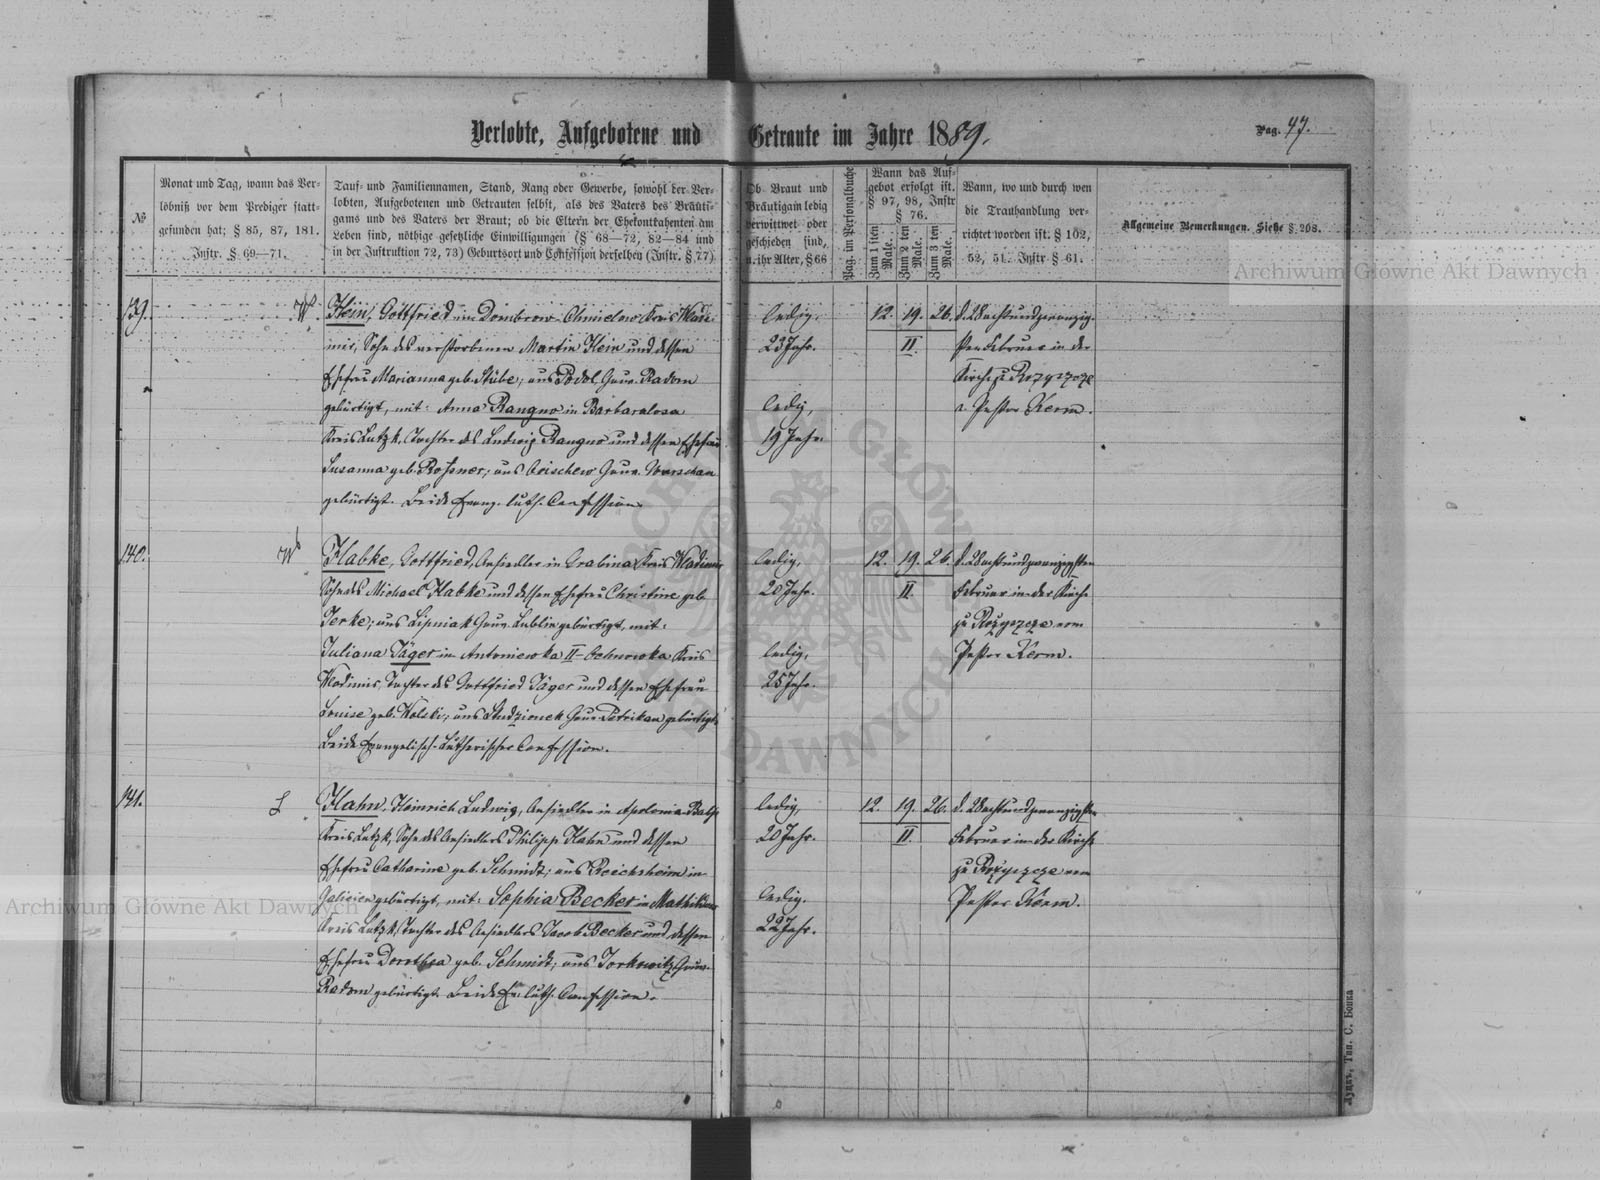 Verlobte, Aufgebotene und Getraute im Jahre 1889.
Pag. 47.
№
Monat und Tag, wann das Ver-
löbniß vor dem Prediger statt-
gefunden hat; § 85, 87, 181.
Instr. § 69—71.
Tauf- und Familiennamen, Stand, Rang oder Gewerbe, sowohl der Ver-
lobten, Aufgebotenen und Getrauten selbst, als des Vaters des Bräuti-
gams und des Vaters der Braut; ob die Eltern der Ehekontrahenten am
Leben sind, nöthige gesetzliche Einwilligungen (§ 68—72, 82—84 und
in der Instruktion 72, 73) Geburtsort und Confession derselben (Instr. § 77)
Ob Braut und
Bräutigam ledig
verwittwet oder
geschieden sind,
u. ihr Alter, § 66
Pag. im Personalbuche
Wann das Auf-
gebot erfolgt ist.
§ 97, 98, Instr
§ 76.
Zum 1 sten Male.
Zum 2 ten Male.
Zum 3 ten Male.
Wann, wo und durch wen
die Trauhandlung ver-
richtet worden ist. § 102,
52, 51. Instr § 61.
Allgemeine Bemerkungen. Siehe § 208.
Archiwum Główne Akt Dawnych
139.
W.
Hein, Gottfried in Dombrow-Chmielow Kreis Wladi-
mir, Sohn des verstorbenen Martin Hein und dessen
Ehefrau Marianna geb. Stübe; aus Podol Gouv. Radom
gebürtigt, mit: Anna Rangno in Barbaralosa
Kreis Lutzk, Tochter des Ludwig Rangno und dessen Ehefrau
Susanna geb. Rossner; aus Gouv. Warschau
gebürtigt. Beide Evang. luth. Confession.
ledig.
23 Jahr.
ledig,
19 Jahr.
12. 19. 26.
II.
d. 26 Sechsundzwanzig-
sten Februar in der
Kirche zu Rozyszcze
v. Pastor Kerm.
140.
W
Habke, Gottfried, Ansiedler in Grabina Kreis Wladimir
Sohn des Michael Habke und dessen Ehefrau Christine geb.
Jerke; aus Lipniak Gouv. Lublin gebürtigt, mit:
Juliana Jäger in Antoniewka II-Ochnowka Kreis
Wladimir, Tochter des Gottfried Jäger und dessen Ehefrau
Louise geb. Wolski; aus Studzionek Gouv. Petrikau gebürtigt,
Beide Evangelisch-Lutherischer Confession.
ledig,
20 Jahr.
ledig,
25 Jahr.
12. 19. 26.
II
d. 26 Sechsundzwanzigsten
Februar in der Kirche
zu Rożyszcze vom
Pastor Kerm.
141.
L
Hahn, Heinrich Ludwig, Ansiedler in Apolonia
Kreis Lutzk, Sohn des Ansiedlers Philipp Hahn und dessen
Ehefrau Catharine geb. Schmidt; aus Reichsheim in
Galizien gebürtigt, mit: Sophia Becker in
Kreis Lutzk, Tochter des Ansiedlers Jacob Becker und dessen
Ehefrau Dorothea geb. Schmidt; aus Gouv.
Radom gebürtigt. Beide Ev. luth. Confession.
ledig,
20 Jahr.
ledig.
22 Jahr.
12. 19. 26.
II.
d. 26 Sechsundzwanzigsten
Februar in der Kirche
zu Rożyszcze vom
Pastor Kerm.
Archiwum Główne Akt Dawnych
ARCHIWUM GŁÓWNE AKT DAWNYCH
Луцкъ, Тип. С. Бонка